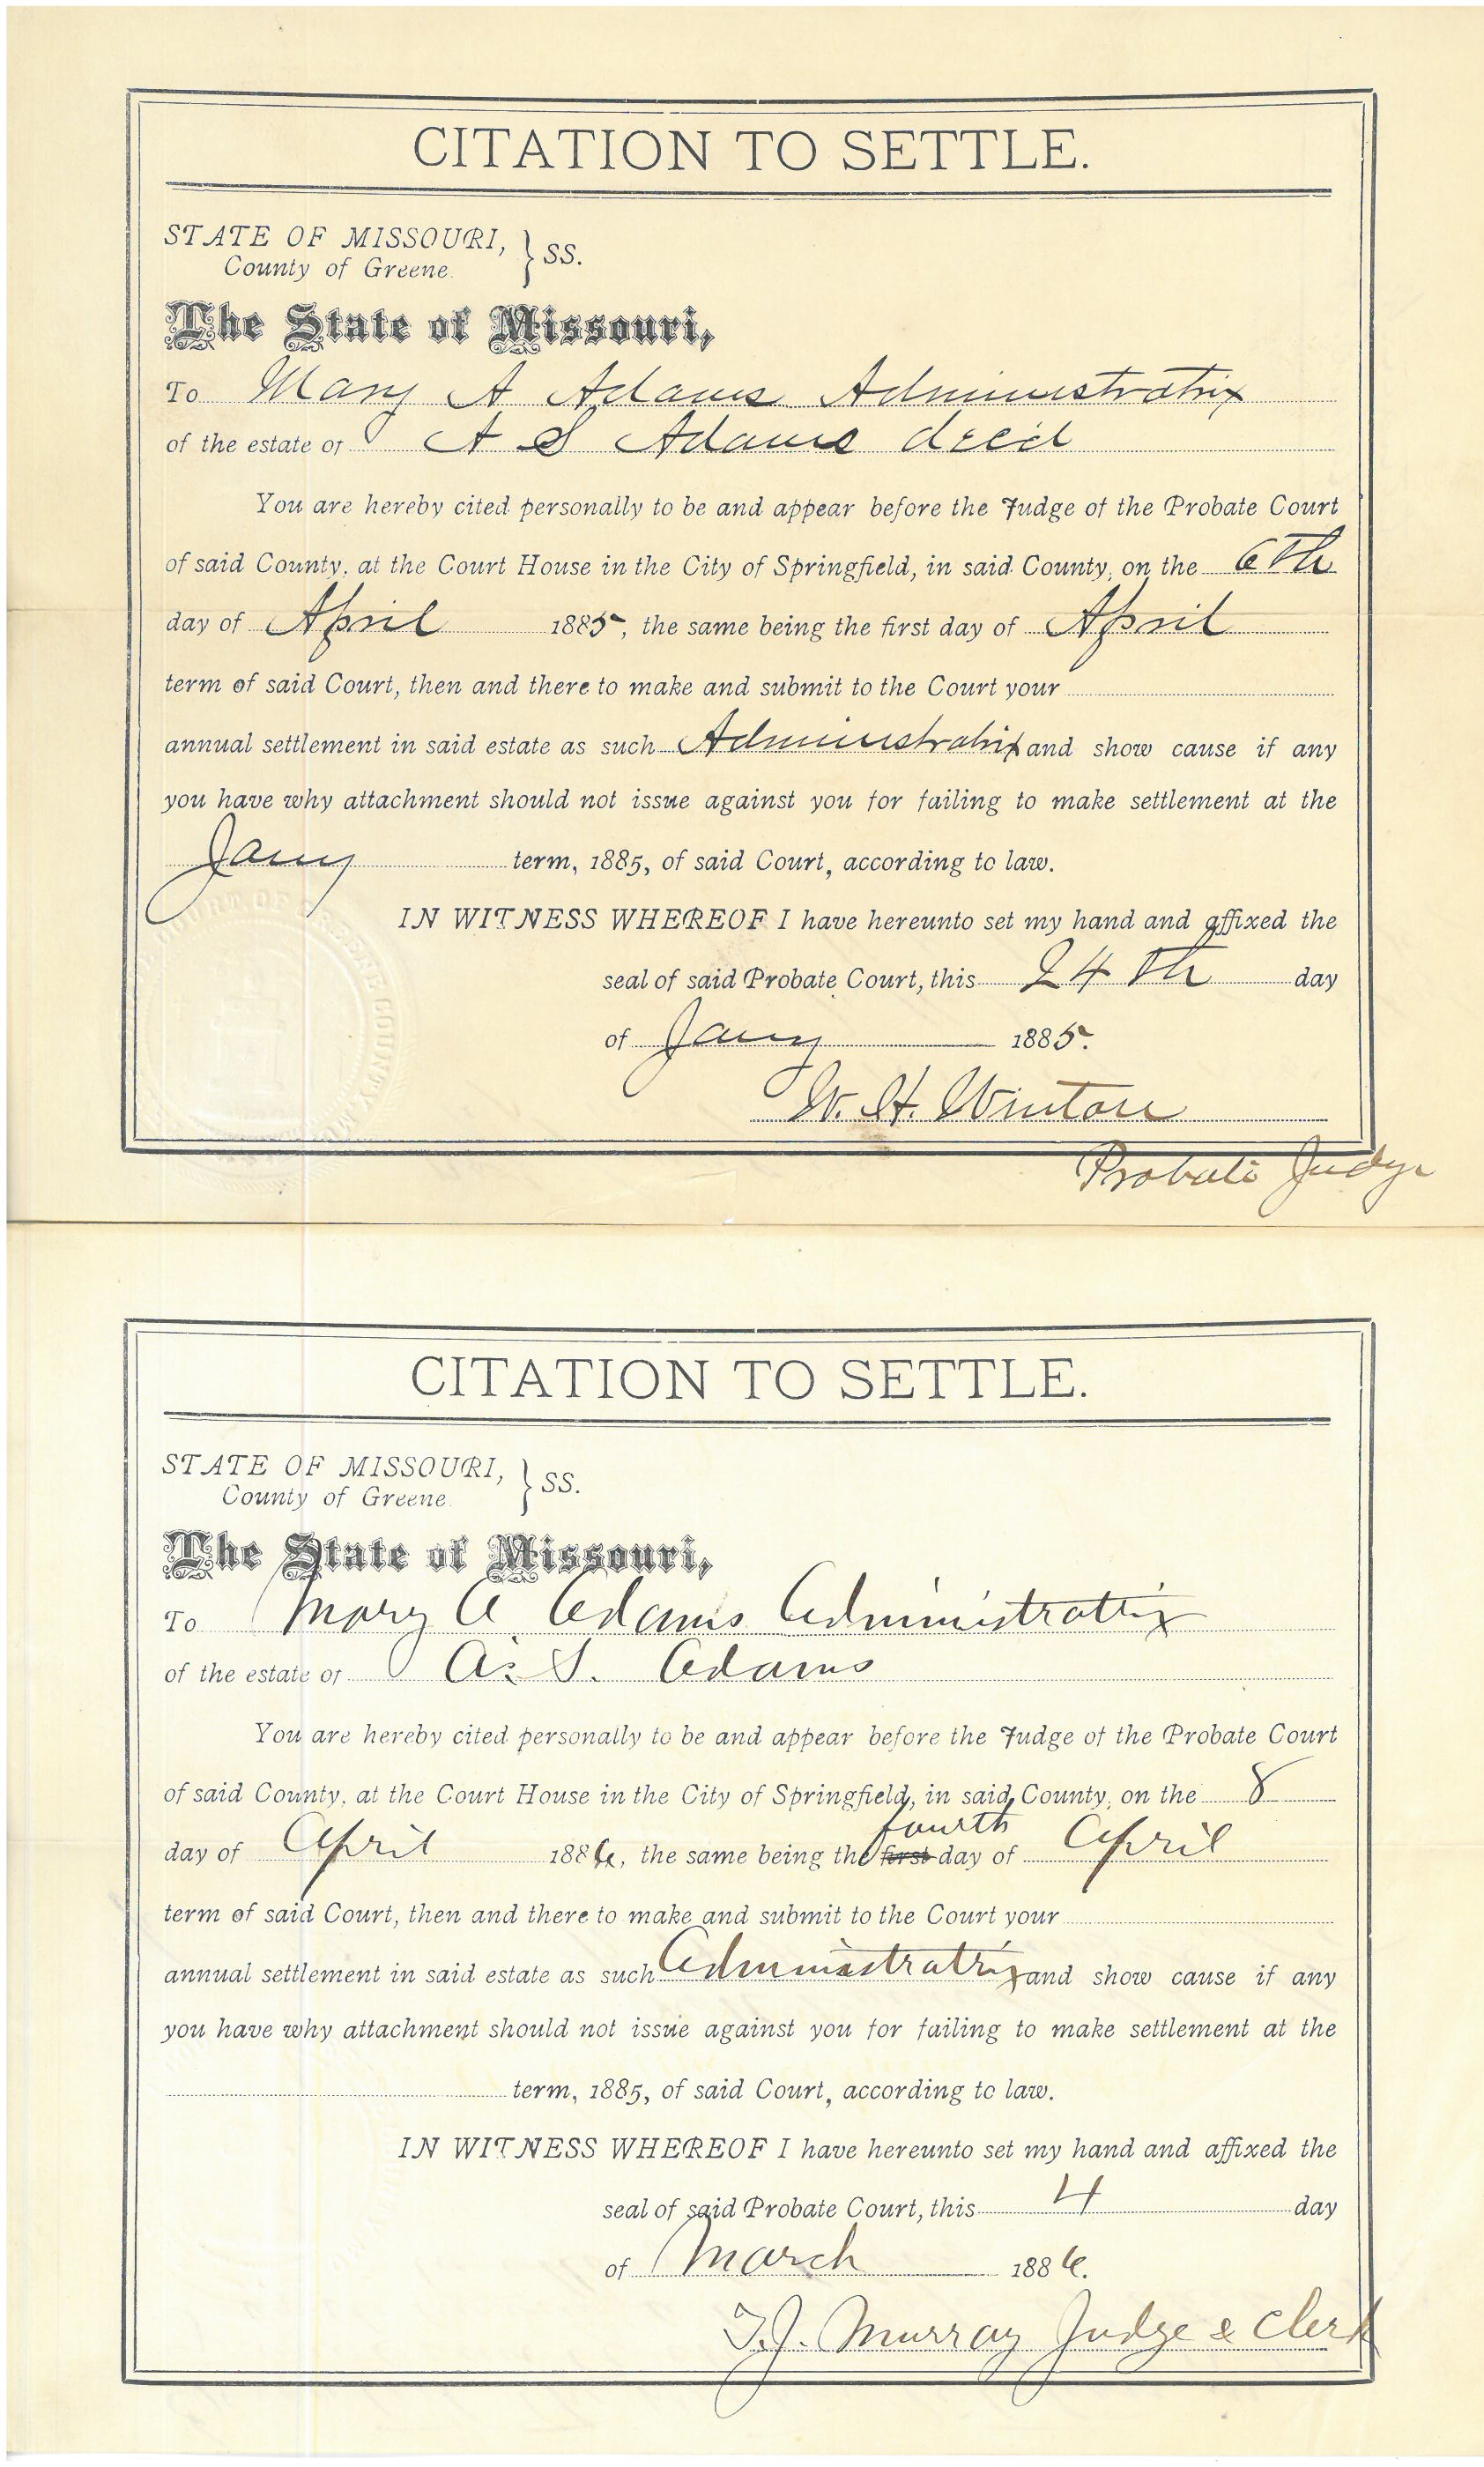 CITATION TO SETTLE.
STATE OF MISSOURI, } SS.
County of Greene.
The State of Missouri,
To Mary A Adams Administratrix
of the estate of A S Adams decd
You are hereby cited personally to be and appear before the Judge of the Probate Court
of said County, at the Court House in the City of Springfield, in said County, on the 6th
day of April 1885, the same being the first day of April
term of said Court, then and there to make and submit to the Court your
annual settlement in said estate as such Administratrix and show cause if any
you have why attachment should not issue against you for failing to make settlement at the
Jany term, 1885, of said Court, according to law.
IN WITNESS WHEREOF I have hereunto set my hand and affixed the
seal of said Probate Court, this 24th day
of Jany 1885.
W. H. Winton
Probate Judge
CITATION TO SETTLE.
STATE OF MISSOURI, } SS.
County of Greene.
The State of Missouri,
To Mary A. Adams Administratrix
of the estate of A. S. Adams
You are hereby cited personally to be and appear before the Judge of the Probate Court
of said County, at the Court House in the City of Springfield, in said County, on the 8
fourth
day of April 1886, the same being the first day of April
term of said Court, then and there to make and submit to the Court your
annual settlement in said estate as such Administratrix and show cause if any
you have why attachment should not issue against you for failing to make settlement at the
term, 1885, of said Court, according to law.
IN WITNESS WHEREOF I have hereunto set my hand and affixed the
seal of said Probate Court, this 4 day
of March 1886.
T.J. Murray Judge & Clerk